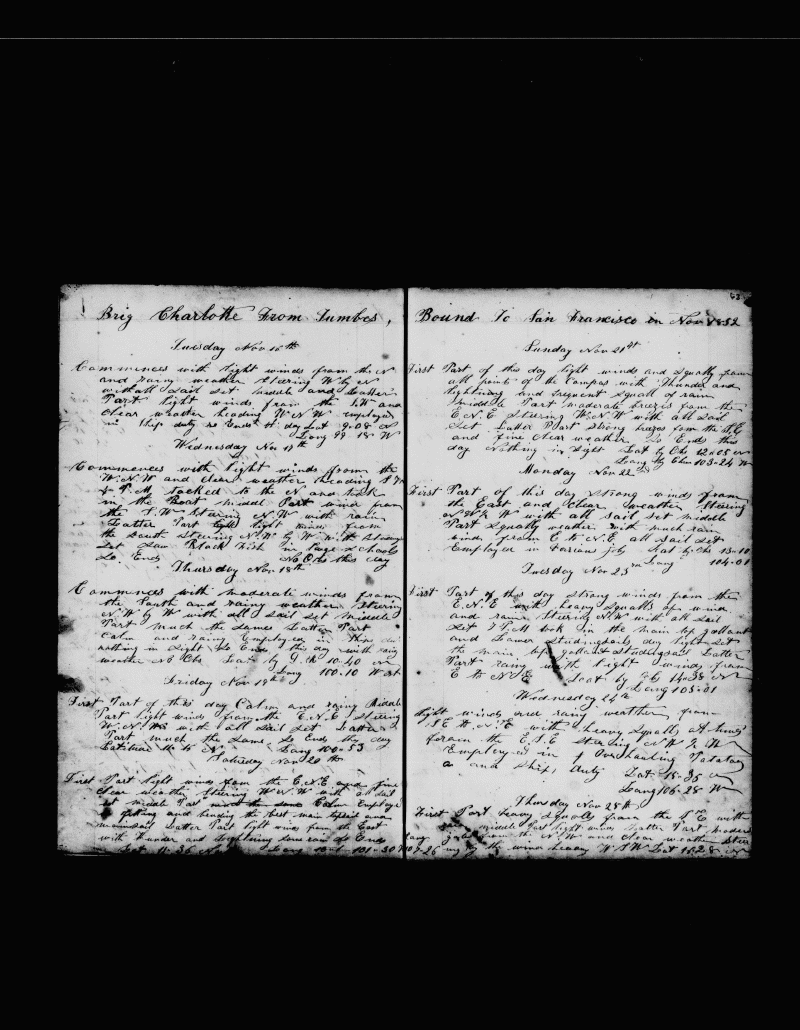 Brig Charlotte From Tumbes,
Tuesday Nov 16th
Commences with light winds from the N
and rainy weather Steering W by N
with all Sail set middle and Latter
Part light winds from the S.W and
clear weather heading W N W employed
in Ship duty so Ends th day Lat 9-08 N
Long 99-18 W
Wednesday Nov 17th
Commences with light winds from the
W.N.W and clear weather heading
P.M tacked to the N and
in the Boat middle Part wind from
the S.W Steering N.W with rain
Latter Part light winds from
the South Steering N.W by W with all
set Saw Black Fish in large Schools
So Ends No Obs this day
Thursday Nov 18th
Commences with moderate winds from
the South and rainy weather Steering
N.W by W with all Sail set middle
Part much the same Latter Part
Calm and rainy Employed in Ships du
nothing in Sight So Ends this day with rainy
weather No Obs Lat by 10-40 N
Long 100-10 West
Friday Nov 19th
First Part of this day Calm and rainy Middle
Part light winds from the E.N.E Steering
W.N.W with all Sail set Latter
Part much the same So Ends this day
Latitue N Long 100-53
Saturday Nov 20th
First Part light winds from the E.N.E and fine
clear weather Steering W N W with all sail
set middle Part much the same Calm Employd
getting and bending the best main topsail and
mainsail Latter Part light winds from the East
with thunder and lightning some rain So Ends
Lat 11-36 Long 101-30
62
Bound To San Francisco in Nov 1852
Sunday Nov 21st
First Part of this day light winds and squally from
all points of the Compas with Thunder and
lightning and frequent squall of rain
Middle Part moderate breezes from the
E.N.E Steering W.N.W with all Sail
Set Latter Part Strong brezes from the S.E
and fine clear weather So Ends this
day Nothing in Sight Lat by Obs 12-05 N
Long by Chro 103-24 W
Monday Nov 22nd
First Part of this day strong winds from
the East and clear weather Steering
N W with all Sail set middle
Part Squally weather with much rain
winds from E to N.E all sail set
Employed in various job Lat by Obs 13-10
Long 104-01
Tuesday Nov 23rd
First Part of this day strong winds from the
E.N.E with heavy squalls of wind
and rain Steering N.W with all Sail
Set P.M took in the main top gallant
and Lower Studingsails day light Set
the main top gallant studingsail Latter
Part rainy with light winds from
E to N E Lat by 14-38 N
Long 105-01
Wednesday 24th
Light winds and rainy weather from
S.E to N.E with heavy squalls at times
from the E.S.E Steering N W W
Employed in Overhailing Potatoes
and Ships Duty Lat 18-36 N
Long 106-28 W
Thursday Nov 25th
First Part heavy squalls from the S.E with
middle Part light winds Latter Part moder
from the N.W and clear weather Steer
ing by the wind heading W S W Lat